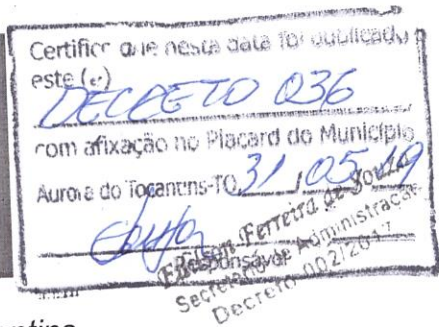 Certifico que nesta data foi publicado
este (e)
DECRETO 036
com afixação no Placard do Município
Aurora do Tocantins-TO 31/05/19
Ferreira de Souza
Responsável
Secretário de Administração
Decreto 002/2017